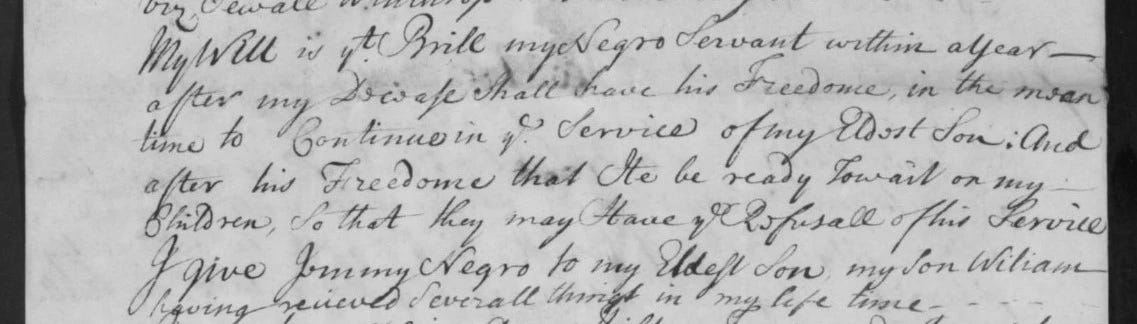 Sewall Winthrop
My Will is yt. Brill my Negro Servant within a year
after my Decease Shall have his Freedome, in the mean
time to Continue in ye. Service of my Eldest Son; And
after his Freedome that He be ready To wait on my
Children, So that they may Have ye Refusall of his Service
I give Jemmy Negro to my Eldest Son, my Son Wiliam
having recieved Severall things in my life time